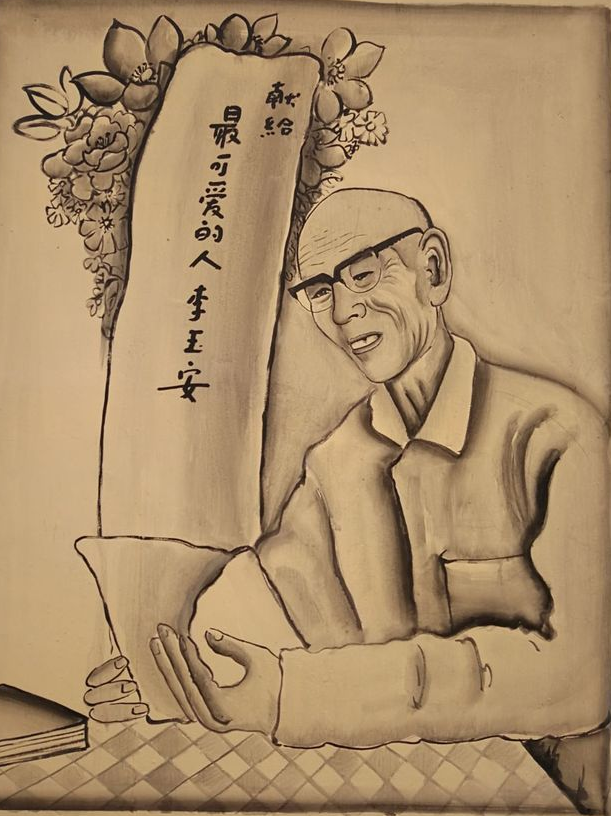 献給
最可爱的人 李玉安